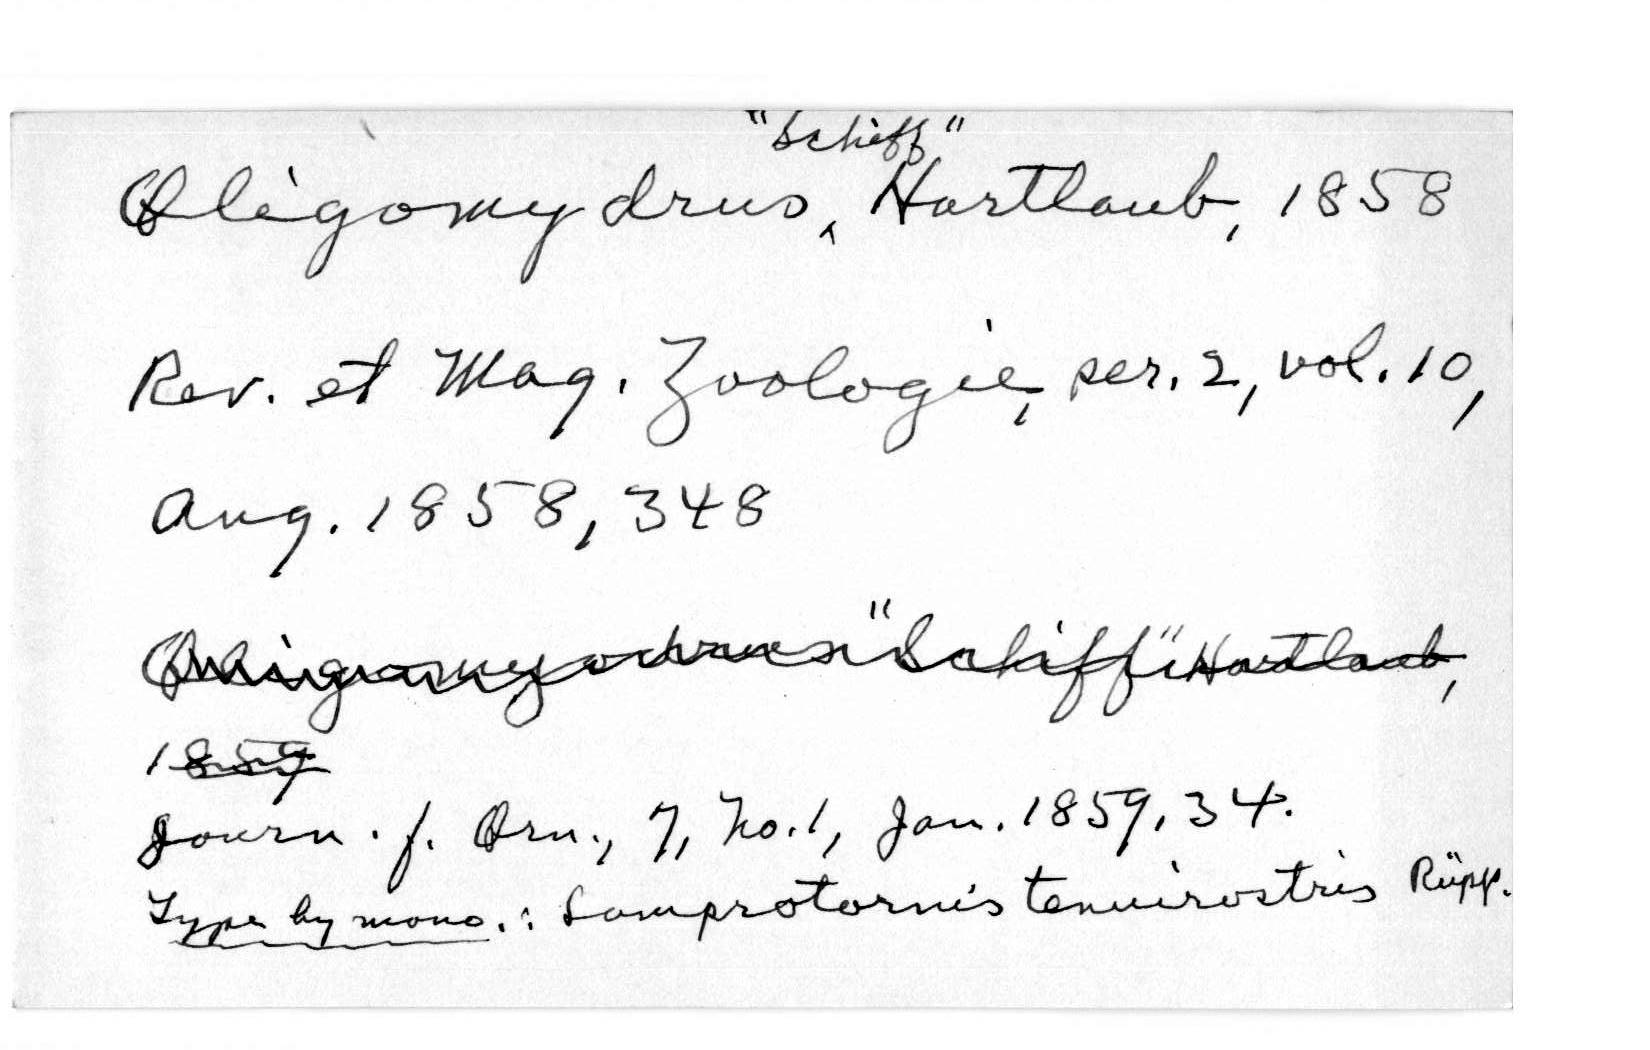 "Schiff"
Oligomydrus, Hartlaub, 1858
Rev. et Mag. Zoologie, ser. 2, vol. 10,
Aug. 1858, 348
Oligomyodrus "Schiff" Hartlaub,
1859
Journ. f. Orn., 7, No. 1, Jan. 1859, 34.
Type by mono.: Lamprotornis tenuirostris Rüpp.